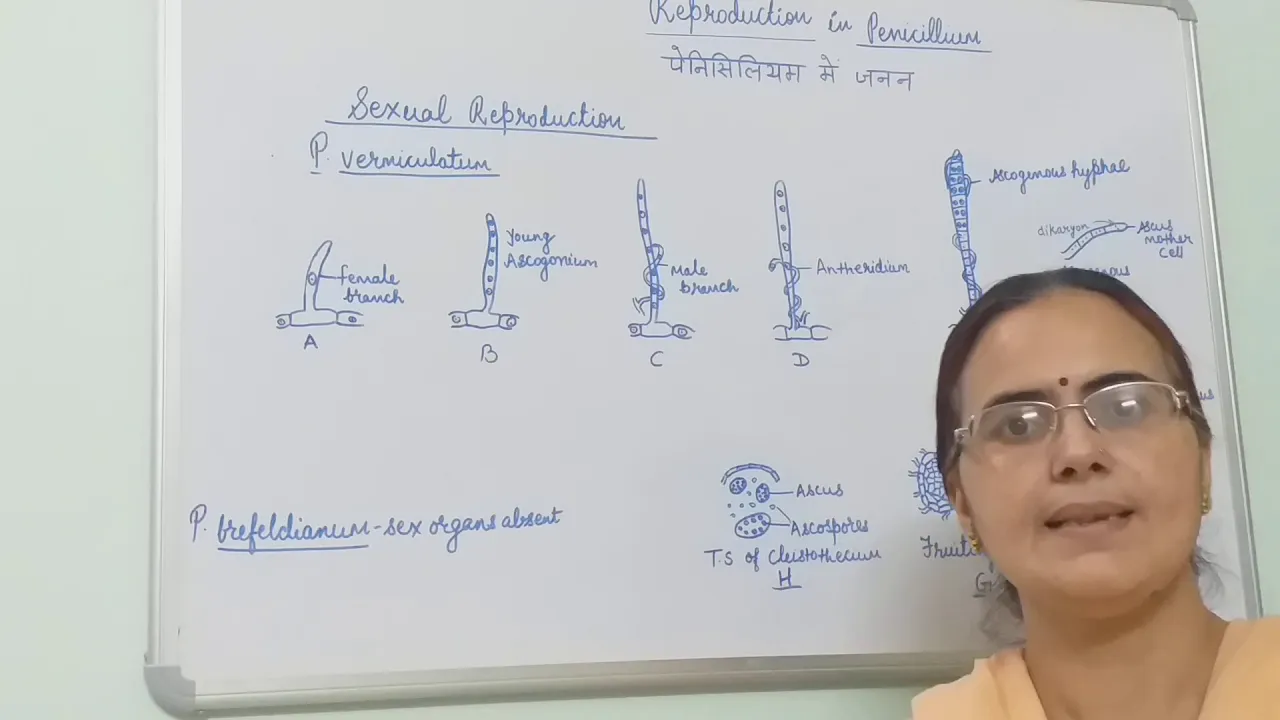 Reproduction in Penicillium
पेनिसिलियम में जनन
Sexual Reproduction
P. vermiculatum
female
branch
A
Young
Ascogonium
B
Male
branch
C
Antheridium
D
Ascogenous hyphae
dikaryon
Ascus
mother
cell
P. brefeldianum - sex organs absent
Ascus
Ascospores
T.S of Cleistothecium
H
G